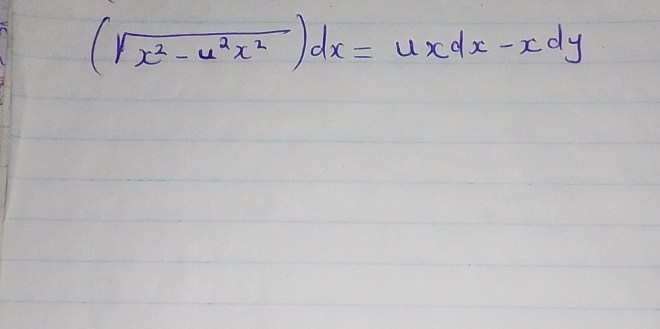 (√x² - u²x²)dx = uxdx - xdy